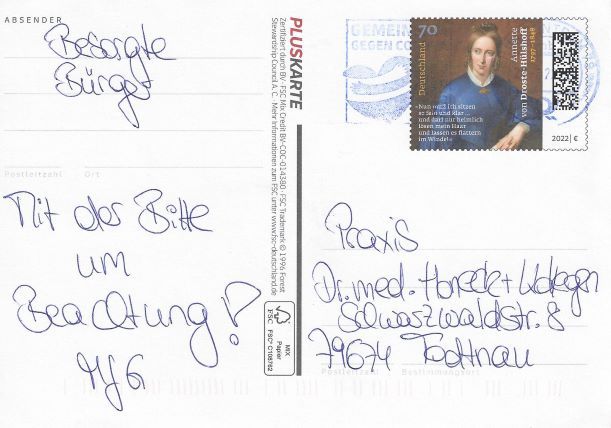 ABSENDER
Besorgte
Bürger
Postleitzahl Ort
Mit der Bitte
um
Beachtung!
MfG
PLUSKARTE
Zertifiziert durch BV-FSC Mix Credit BV-COC-014380 · FSC Trademark © 1996 Forest
Stewardship Council A.C. · Mehr Informationen zum FSC unter www.fsc-deutschland.de
FSC
MIX
Papier
FSC® C108762
GEMEIN
GEGEN CO
70
Deutschland
Annette
von Droste-Hülshoff
1797–1848
»Nun muß ich sitzen
so fein und klar ...
und darf nur heimlich
lösen mein Haar
und lassen es flattern
im Winde!«
2022 | €
Praxis
Dr. med. Honeck +
Schwarzwaldstr. 8
79674 Todtnau
Postleitzahl Bestimmungsort